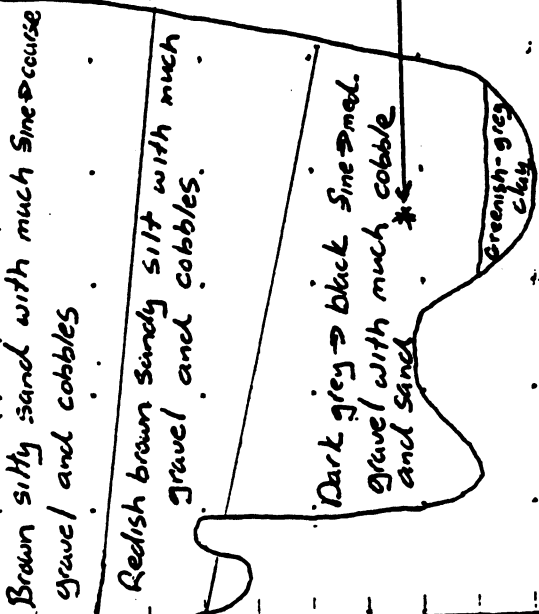 Brown silty sand with much fine→course
gravel and cobbles
Redish brown sandy silt with much
gravel and cobbles.
Dark grey→black fine→med.
gravel with much cobble
and sand
*
Greenish-grey
clay